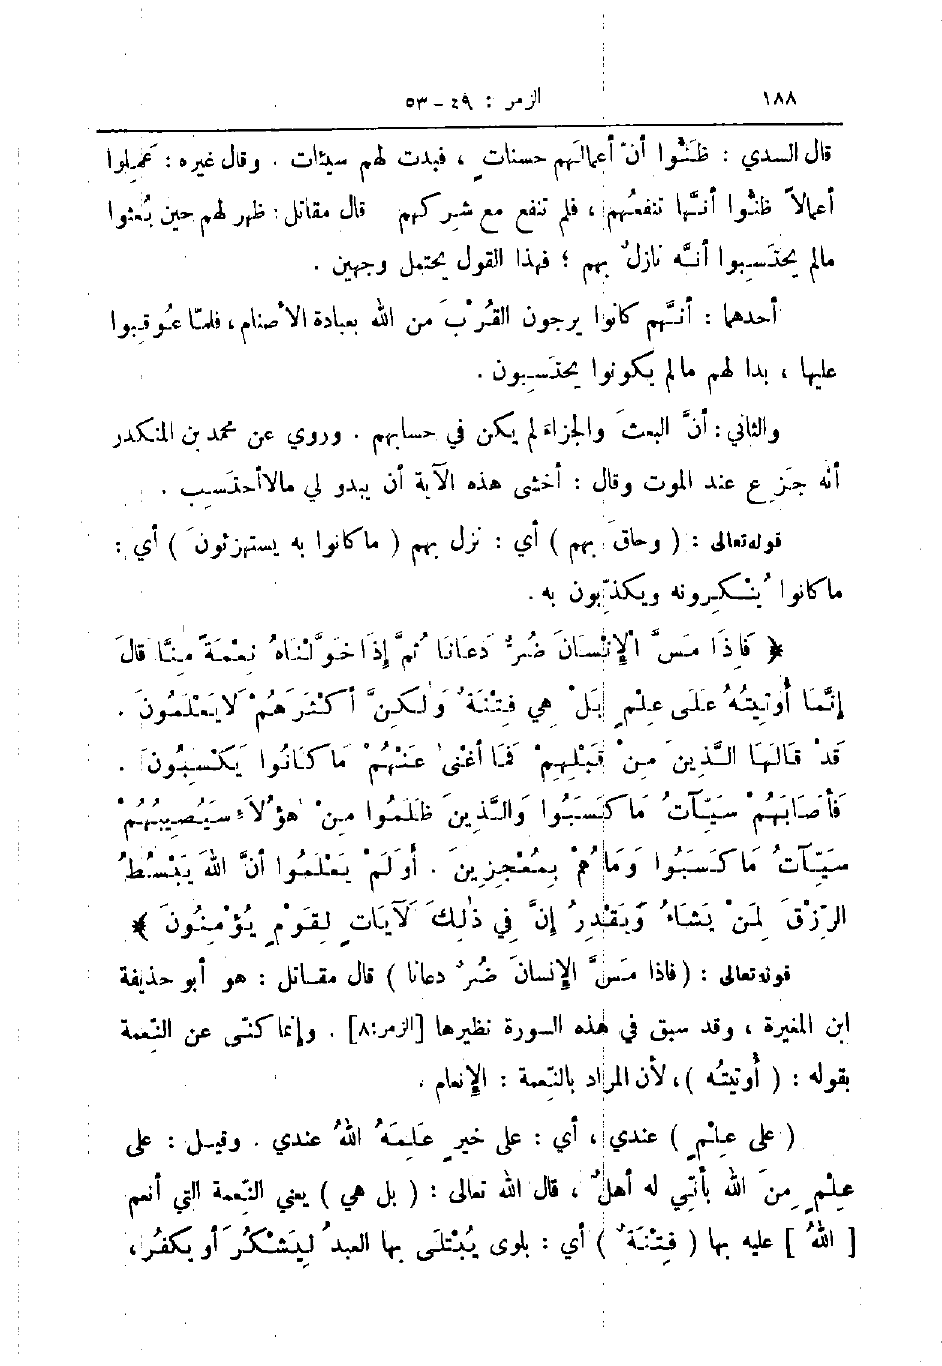 ١٨٨ الزمر : ٤٩ - ٥٣
قال السدي : ظَنُّوا أنّ أعمالَهم حسنات ، فبدت لهم سيئات . وقال غيره : عَمِلوا
أعمالاً ظنُّوا أنَّها تنفعُهم ، فلم تنفع مع شركهم قال مقاتل : ظهر لهم حين بُعثوا
مالم يحتَسِبوا أنَّه نازلٌ بهم ؛ فهذا القول يحتمل وجهين .
أحدهما : أنَّهم كانوا يرجون القُرْبَ من الله بعبادة الأصنام ، فلمّا عُوقِبوا
عليها ، بدا لهم مالم يكونوا يحتَسِبون .
والثاني : أنَّ البعثَ والجزاءَ لم يكن في حسابهم . وروي عن محمد بن المنكدر
أنه جَزِع عند الموت وقال : أخشى هذه الآية أن يبدو لي مالاأحتَسِب .
قوله تعالى : ( وحاقَ بهم ) أي : نزل بهم ( ماكانوا به يستهزئونَ ) أي :
ماكانوا يُنْكِرونه ويكذِّبون به .
﴿ فَإِذَا مَسَّ الْإِنْسَانَ ضُرٌّ دَعَانَا ثُمَّ إِذَا خَوَّلْنَاهُ نِعْمَةً مِنَّا قَالَ
إِنَّمَا أُوتِيتُهُ عَلَى عِلْمٍ بَلْ هِي فِتْنَةٌ وَلٰكِنَّ أَكْثَرَهُمْ لَايَعْلَمُونَ .
قَدْ قَالَهَا الَّذِينَ مِنْ قَبْلِهِمْ فَمَا أَغْنىٰ عَنْهُمْ مَاكَانُوا يَكْسِبُونَ .
فَأَصَابَهُمْ سَيِّآتُ مَاكَسَبُوا وَالَّذِينَ ظَلَمُوا مِنْ هٰؤُلَاءِ سَيُصِيبُهُمْ
سَيِّآتُ مَاكَسَبُوا وَمَاهُمْ بِمُعْجِزِينَ . أَوَلَمْ يَعْلَمُوا أَنَّ اللهَ يَبْسُطُ
الرِّزْقَ لِمَنْ يَشَاءُ وَيَقْدِرُ إِنَّ فِي ذٰلِكَ لَآيَاتٍ لِقَوْمٍ يُؤْمِنُونَ ﴾
قوله تعالى : ( فاذا مَسَّ الإِنسانَ ضُرٌّ دعانا ) قال مقاتل : هو أبو حذيفة
ابن المغيرة ، وقد سبق في هذه السورة نظيرها [الزمر:٨] . وإنما كنّى عن النِّعمة
بقوله : ( أُوتيتُه ) ، لأن المراد بالنِّعمة : الإنعام .
( على عِلْمٍ ) عندي ، أي : على خيرٍ عَلِمَهُ اللهُ عندي . وقيل : على
عِلْمٍ مِنَ الله بأنّي له أهلٌ ، قال الله تعالى : ( بل هي ) يعني النِّعمة التي أنعم
[ اللهُ ] عليه بها ( فِتْنَةٌ ) أي : بلوى يُبْتَلَى بها العبدُ لِيَشْكُرَ أو يكفُر ،